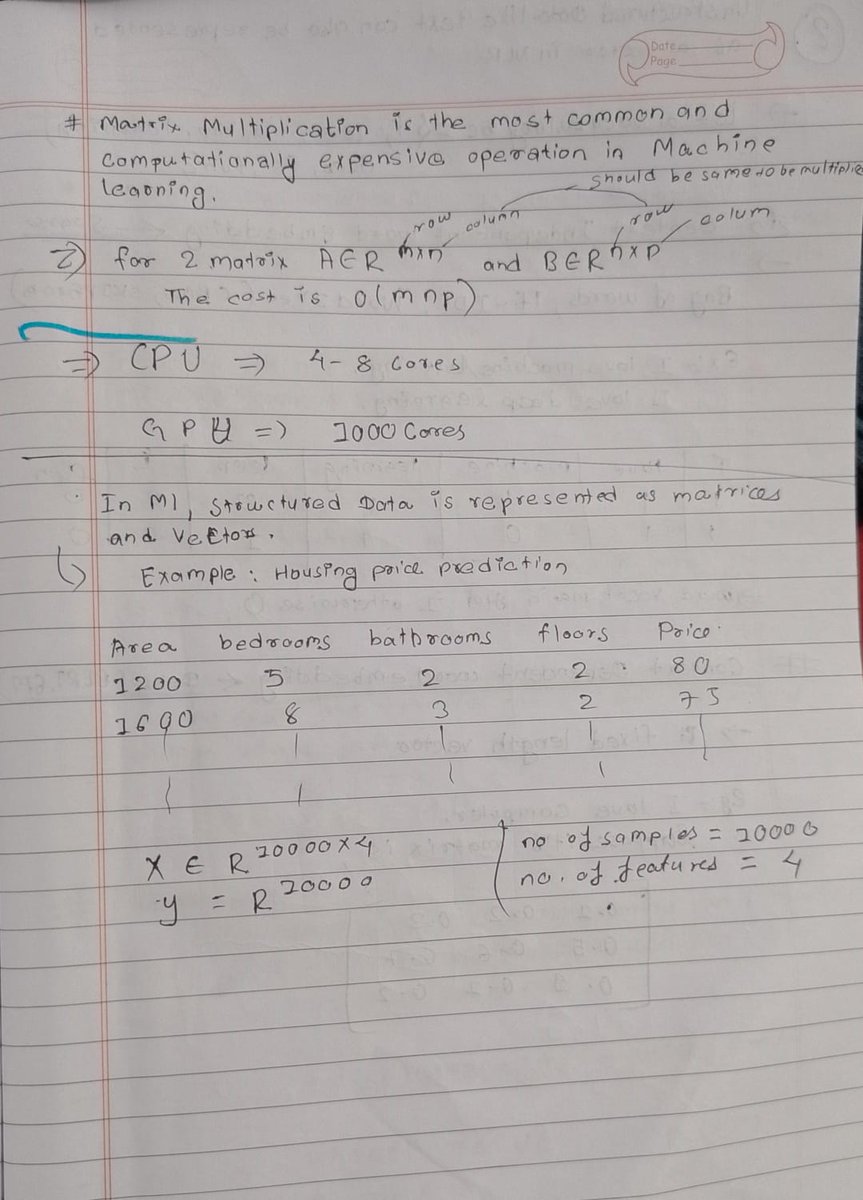 Date
Page
# Matrix Multiplication is the most common and
computationally expensive operation in Machine
learning.
should be same to be multiplie
row column row colum
2) for 2 matrix A∈R m×n and B∈R n×p
The cost is O(mnp)
⇒ CPU ⇒ 4-8 Cores
GPU ⇒ 1000 Cores
In Ml, Structured Data is represented as matrices
and Vectors.
↳ Example : Housing price prediction
Area bedrooms bathrooms floors Price
1200 5 2 2 80
1690 8 3 2 75
X ∈ R 10000×4 no of samples = 10000
y = R 10000 no. of features = 4